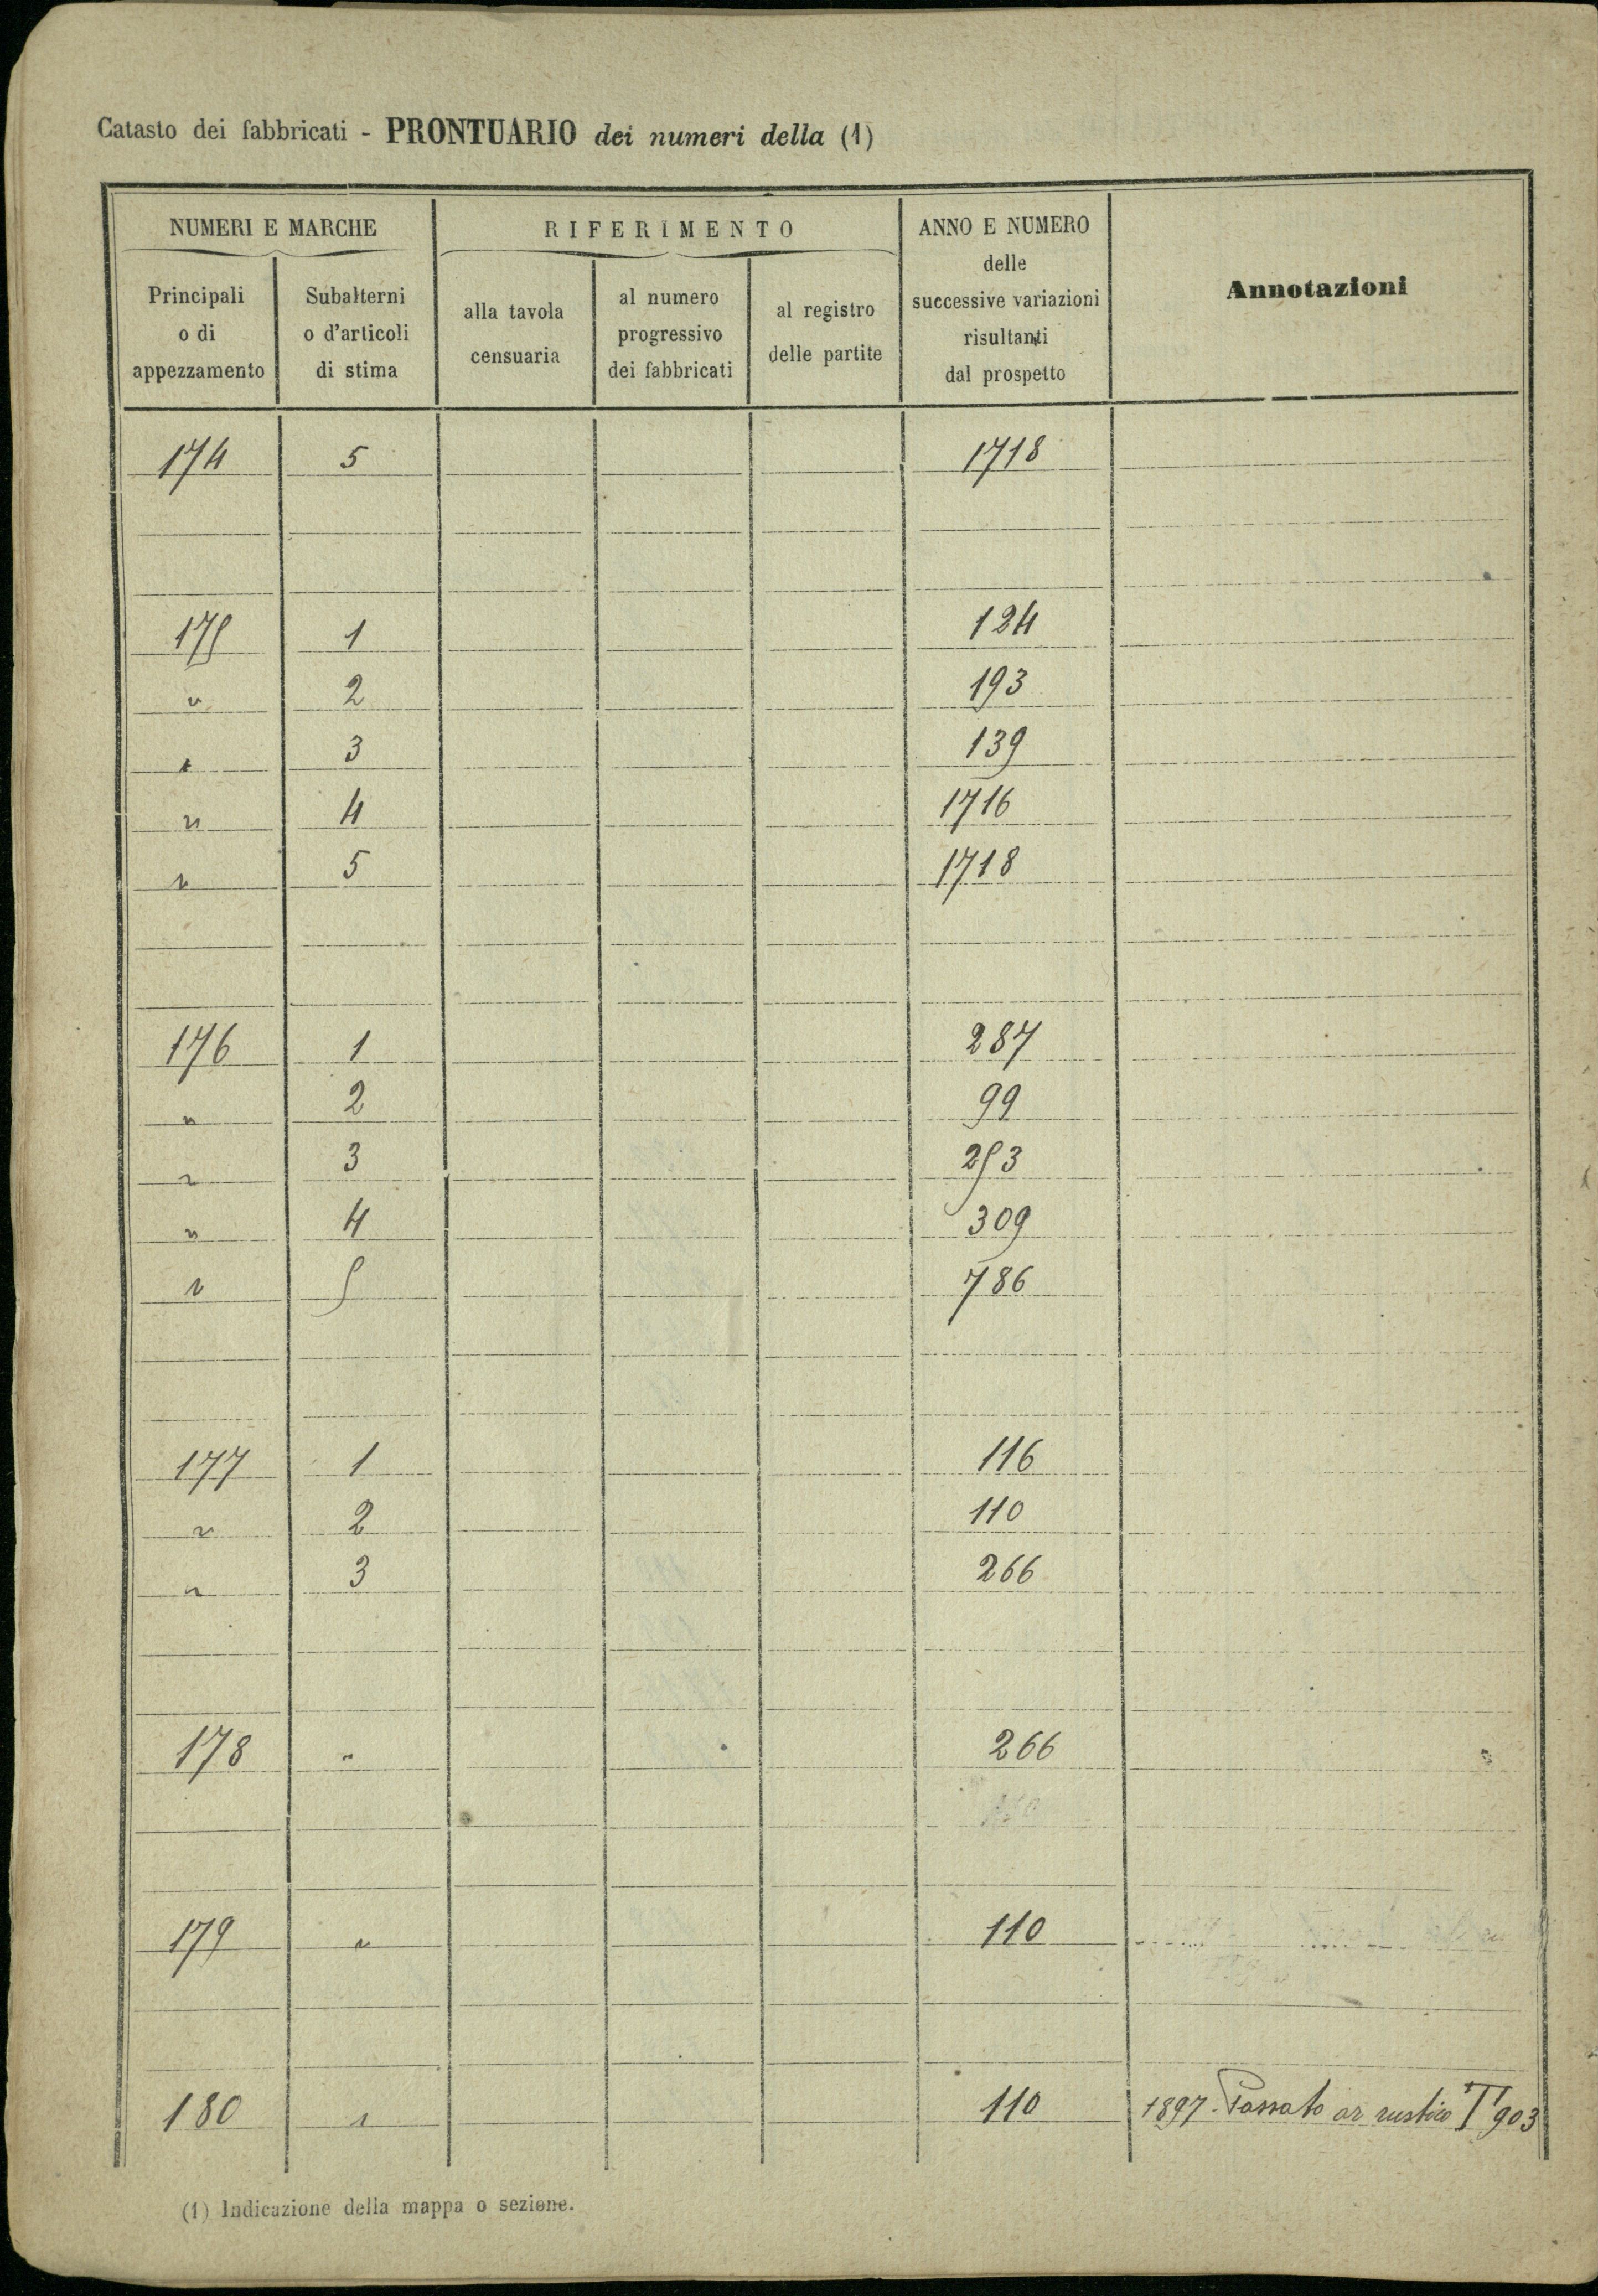 Catasto dei fabbricati - PRONTUARIO dei numeri della (1)
NUMERI E MARCHE
RIFERIMENTO
ANNO E NUMERO delle successive variazioni risultanti dal prospetto
Annotazioni
Principali o di appezzamento
Subalterni o d'articoli di stima
alla tavola censuaria
al numero progressivo dei fabbricati
al registro delle partite
174 5 1718
175 1 124
" 2 193
" 3 139
" 4 1716
" 5 1718
176 1 287
" 2 99
" 3 253
" 4 309
" 5 786
177 1 116
" 2 110
" 3 266
178 " 266
179 " 110
180 " 110 1897. Passato al rustico T 903
(1) Indicazione della mappa o sezione.